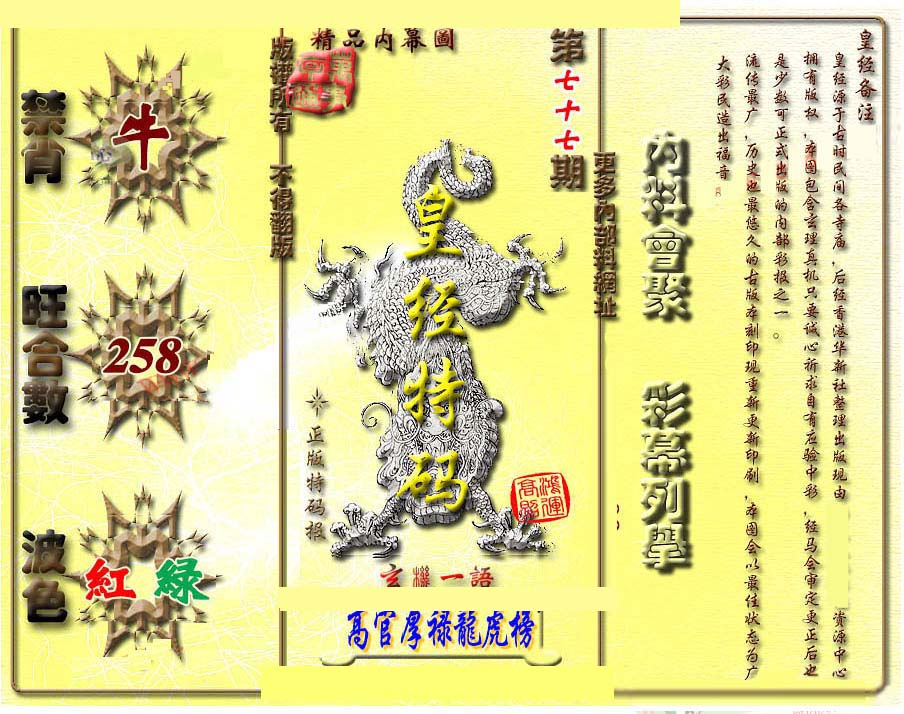 皇经备注
皇经源于古时民间各寺庙，后经香港华新社整理出版现由
资源中心
拥有版权，本图包含玄理真机只要诚心祈求自有应验中彩，经马会审定更正后也
是少数可正式出版的内部彩报之一。
流传最广，历史也最悠久的古版本刻印现重新更新印刷，本图会以最佳状态为广
大彩民造出福音
內料會聚
彩幕列舉
更多內部料網址
第七十七期
精品内幕圖
皇经特码
鴻運高照
正版特码报
版權所有 不得翻版
玄機一語
高官厚禄龍虎榜
禁肖
牛
旺合數
258
波色
紅 綠